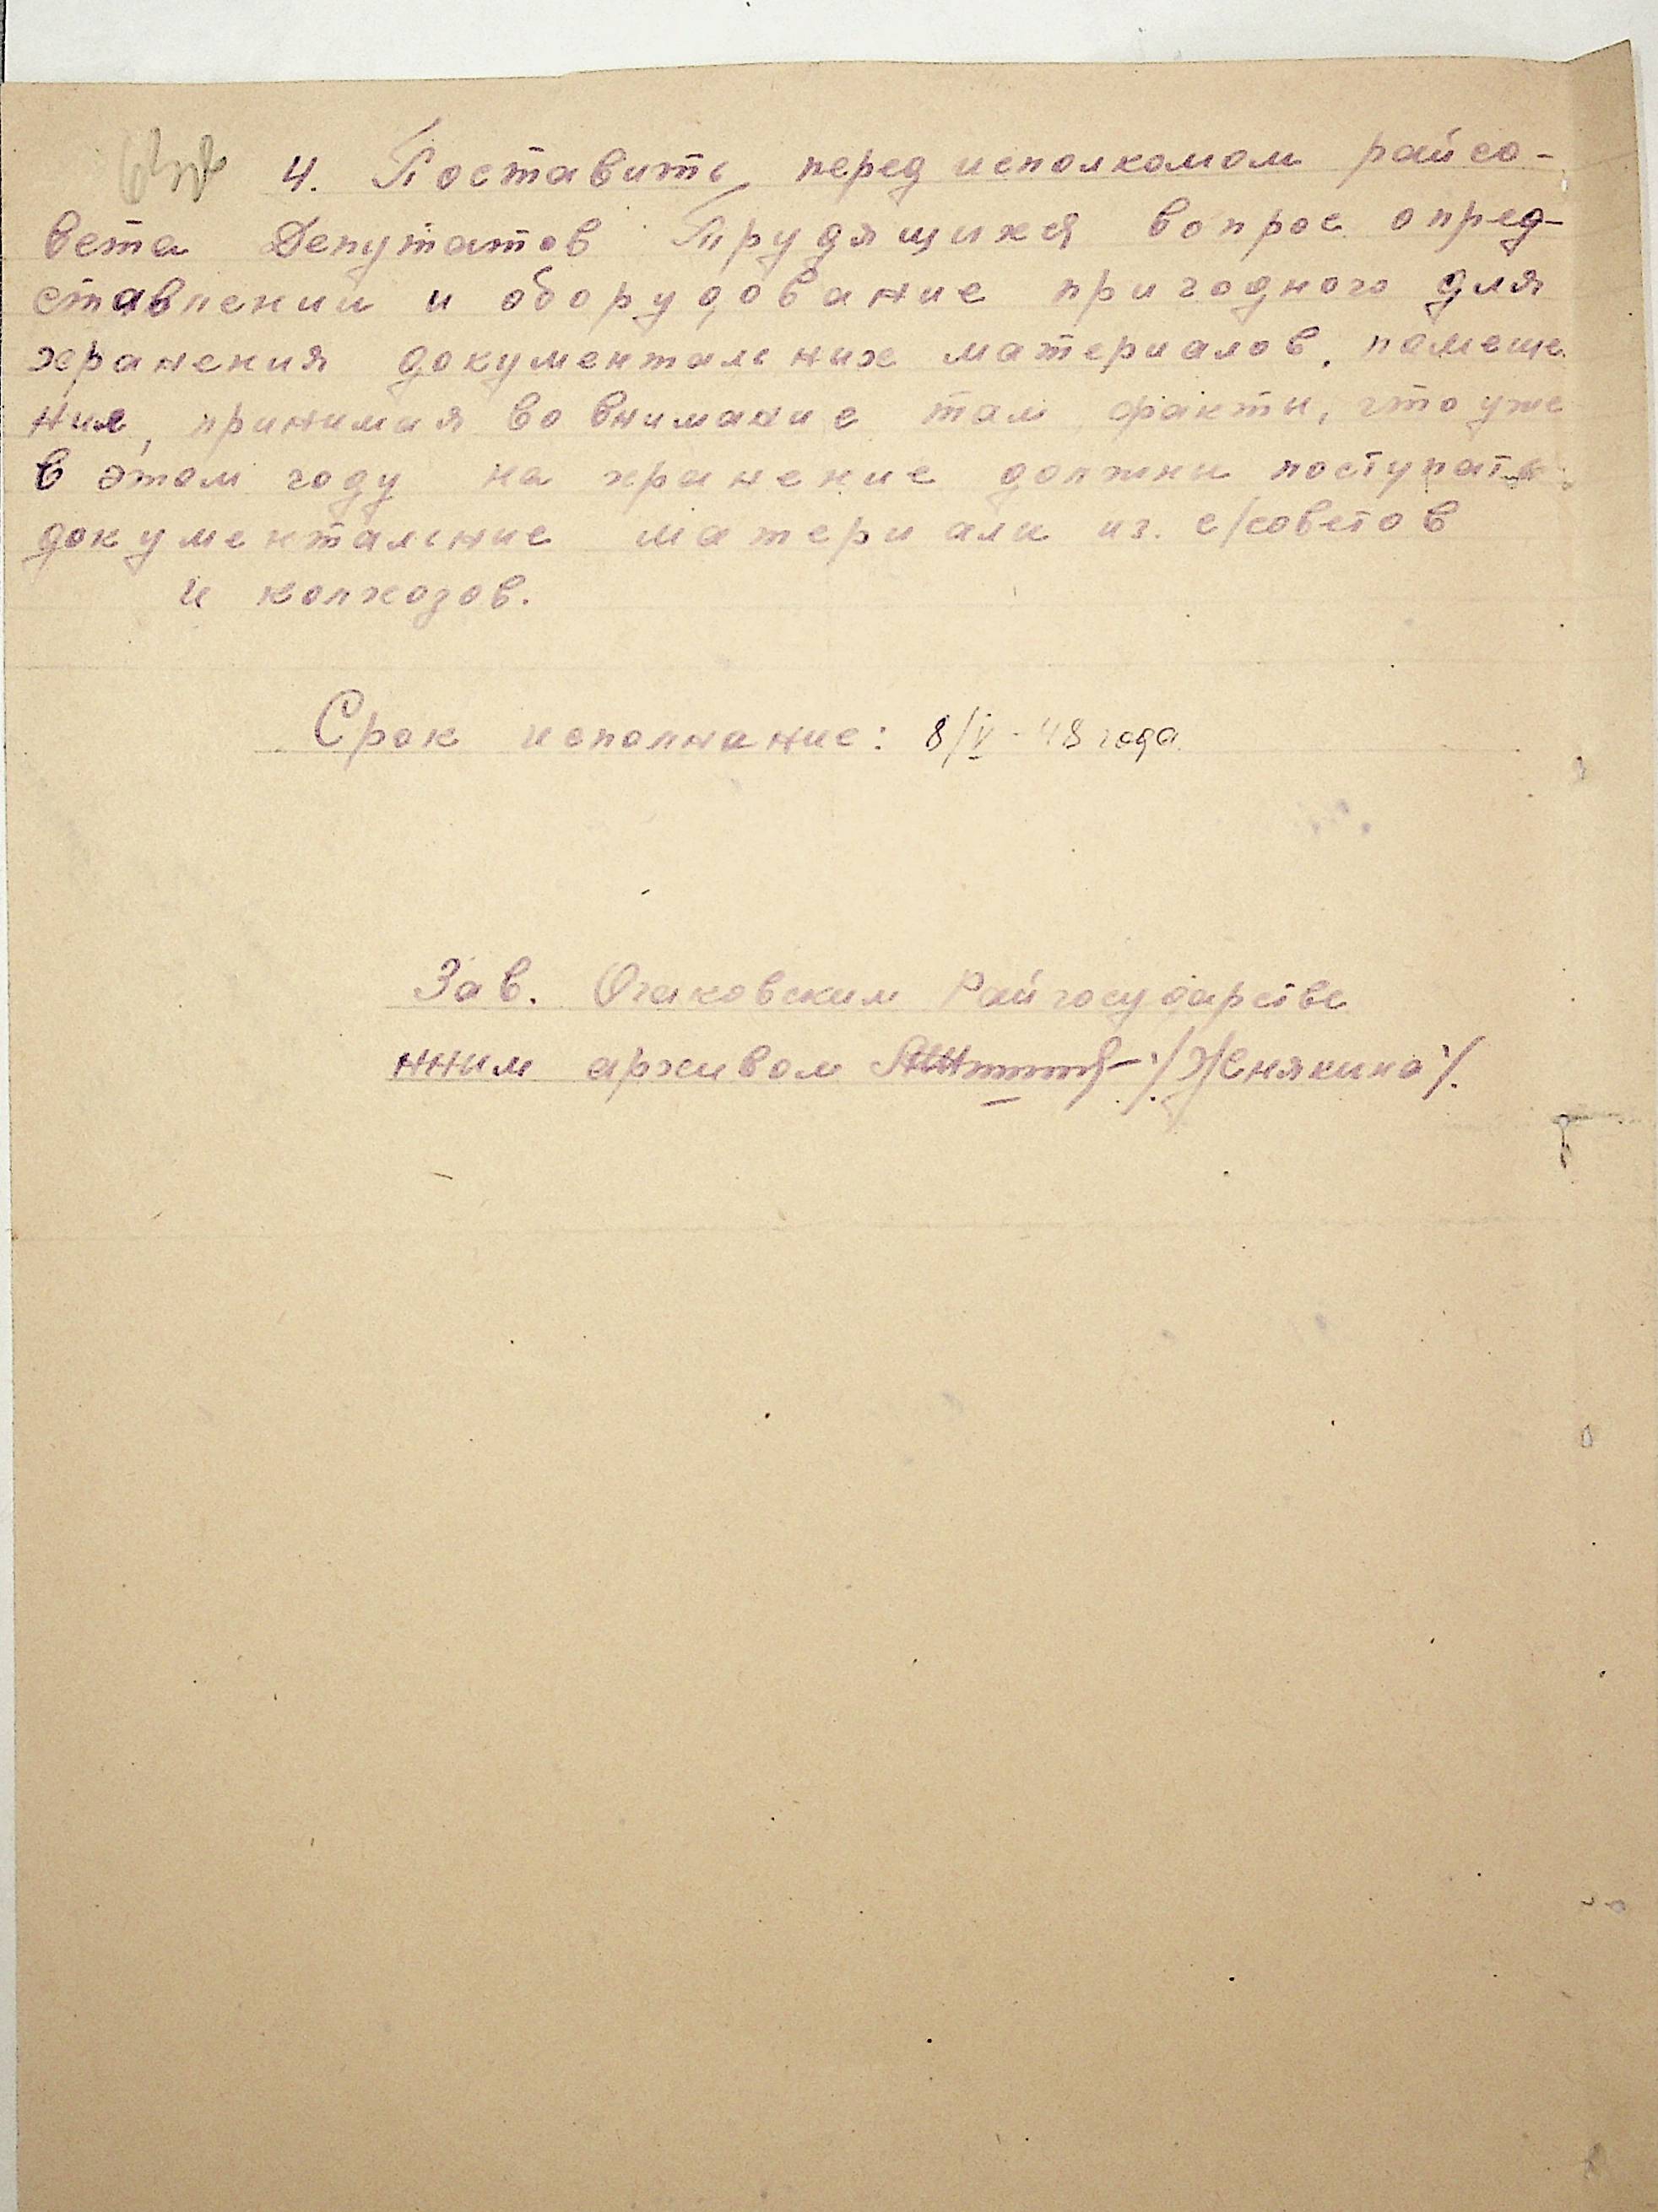 4. Поставить перед исполкомом райсо-
вета Депутатов Трудящихся вопрос опред-
ставлении и оборудование пригодного для
хранения документальних материалов, помеще
ния, принимая во внимание там факти, что уже
в этом году на хранение должни поступать
документальние материали из с/советов
и колхозов.
Срок исполнание: 8/V - 48 года
Зав. Очаковским Райгосударстве
нним архивом /Женякина/.